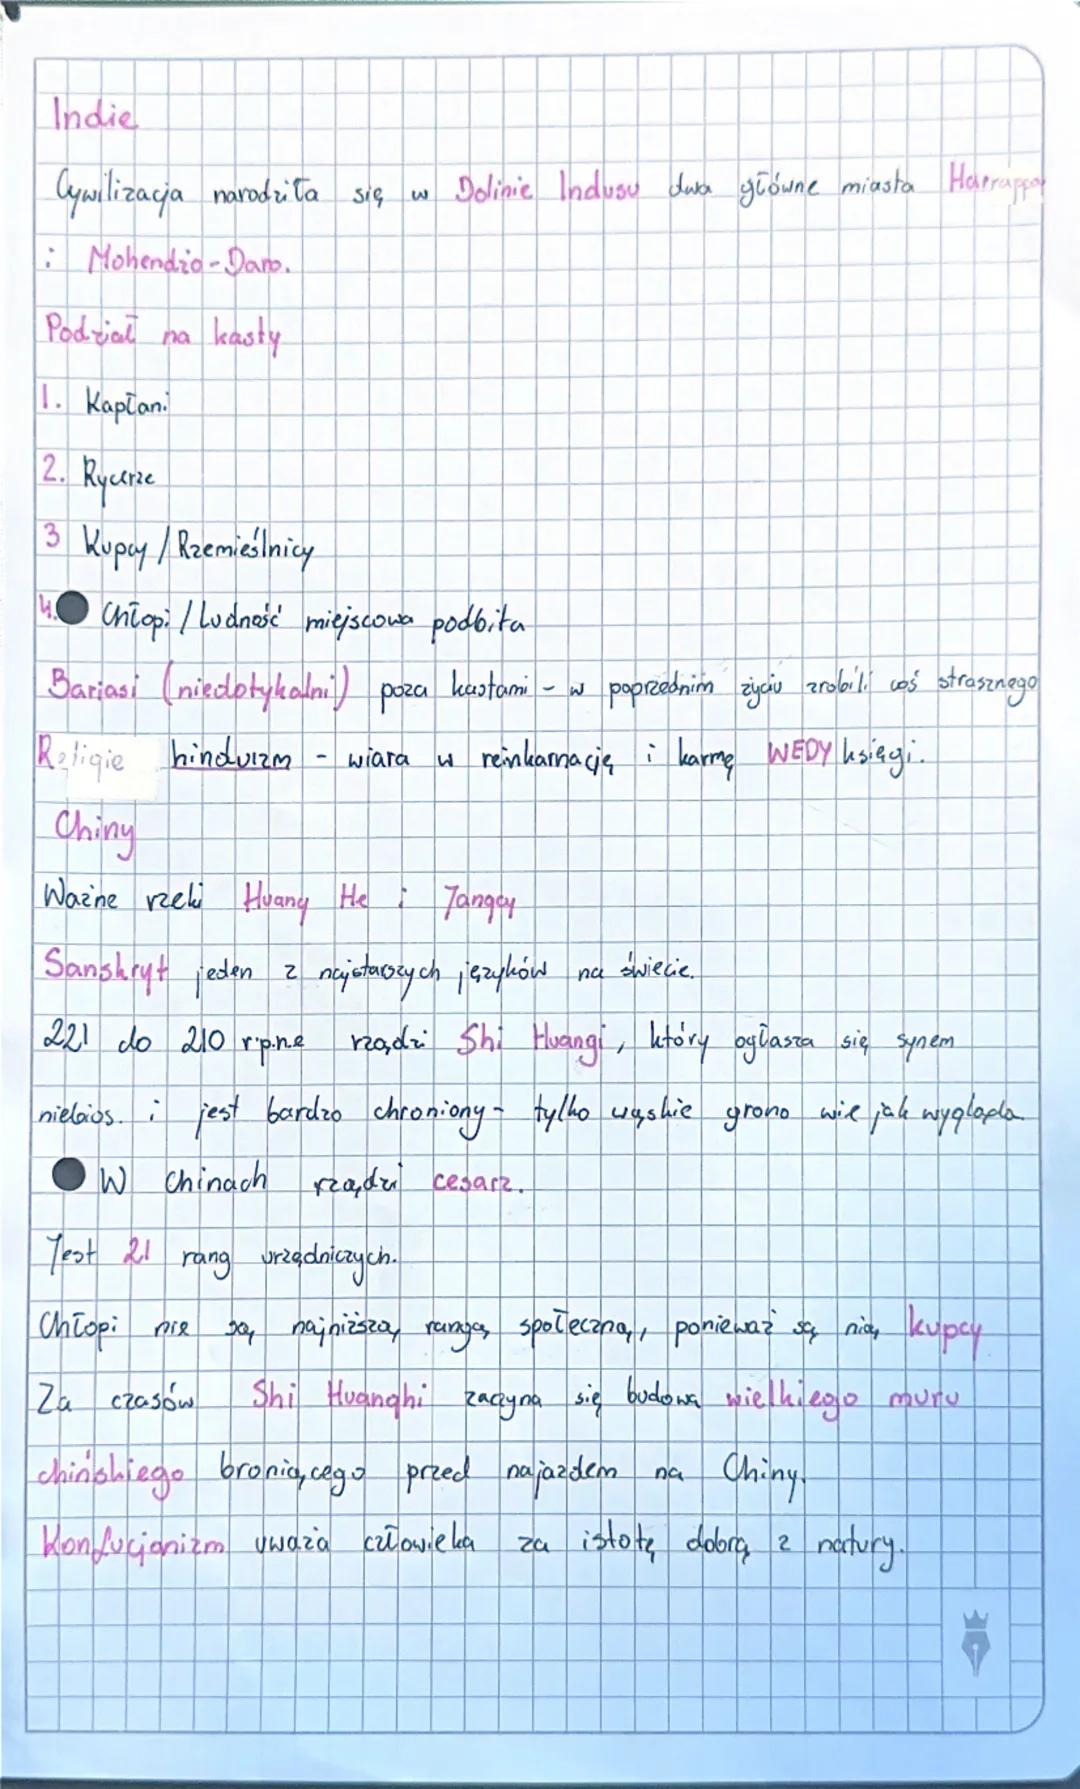 Indie
Cywilizacja narodziła się w Dolinie Indusu dwa główne miasta Harrappa
i Mohendżo-Daro.
Podział na kasty
1. Kapłani
2. Rycerze
3 Kupcy / Rzemieślnicy
4. Chłopi / Ludność miejscowa podbita
Bariasi (niedotykalni) poza kastami - w poprzednim życiu zrobili coś strasznego
Religie hinduizm - wiara w reinkarnację i karmę WEDY księgi.
Chiny
Ważne rzeki Huang He i Jangcy
Sanskryt jeden z najstarszych języków na świecie.
221 do 210 r.p.n.e rządzi Shi Huangi, który ogłasza się synem
niebios. i jest bardzo chroniony - tylko wąskie grono wie jak wygląda.
W Chinach rządzi cesarz.
Jest 21 rang urzędniczych.
Chłopi nie są najniższą rangą społeczną, ponieważ są nią kupcy
Za czasów Shi Huanghi zaczyna się budowa wielkiego muru
chińskiego broniącego przed najazdem na Chiny.
Konfucjanizm uważa człowieka za istotę dobrą z natury.